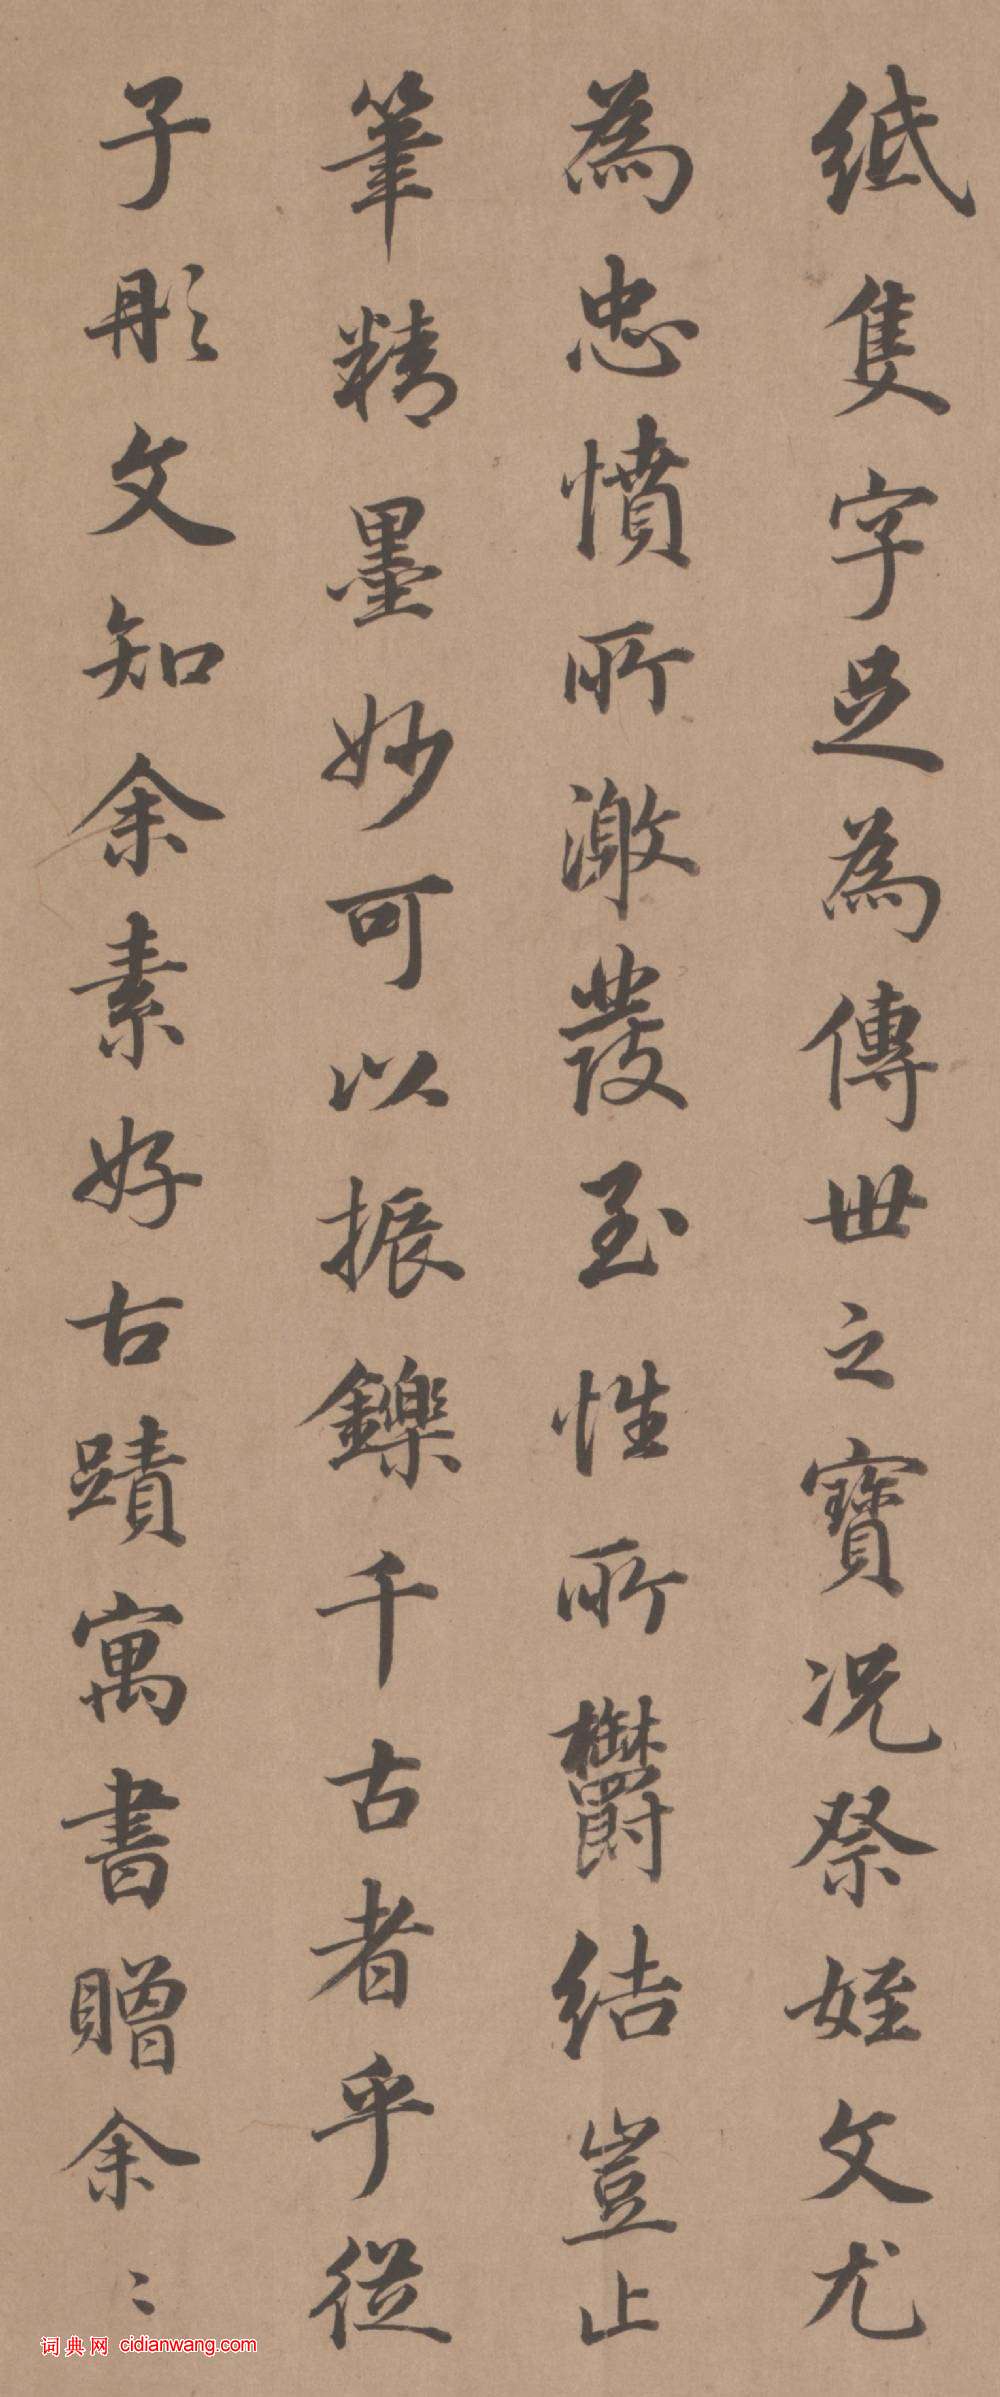 紙隻字足為傳世之寶况祭姪文尤
為忠憤所激發至性所鬱結豈止
筆精墨妙可以振鑠千古者乎從
子彤文知余素好古蹟寓書贈余〻
词典网 cidianwang.com